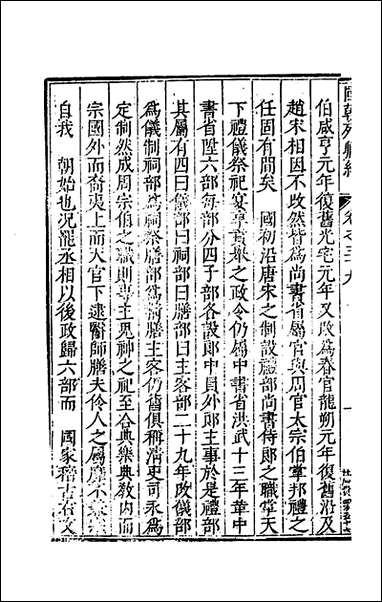 伯咸亨元年復舊光宅元年又改為春官龍朔元年復舊沿及
趙宋相因不改然皆為尚書省屬官與周官大宗伯掌邦禮之
任固有間矣 國初沿唐宋之制設禮部尚書侍郎之職掌天
下禮儀祭祀宴享貢舉之政令仍屬中書省洪武十三年革中
書省陞六部每部分四子部各設郎中員外郎主事於是禮部
其屬有四曰儀部曰祠部曰膳部曰主客部二十九年改儀部
為儀制祠部為祠祭膳部為精膳主客仍舊俱稱清吏司永為
定制然成周宗伯之職則專主鬼神之祀至合典樂典教內而
宗國外而裔夷上而天官下逮醫師膳夫伶人之屬靡不兼綜
自我 朝始也況罷丞相以後政歸六部而 國家稽古右文
國朝列卿紀
卷之三十九